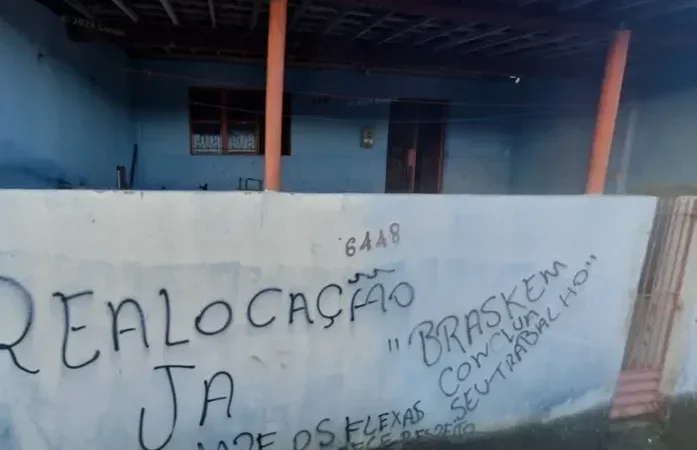 6448
REALOCAÇÃO
JÁ
"BRASKEM
CONCLUA
SEU TRABALHO"
OS FLEXAS
RESPEITO